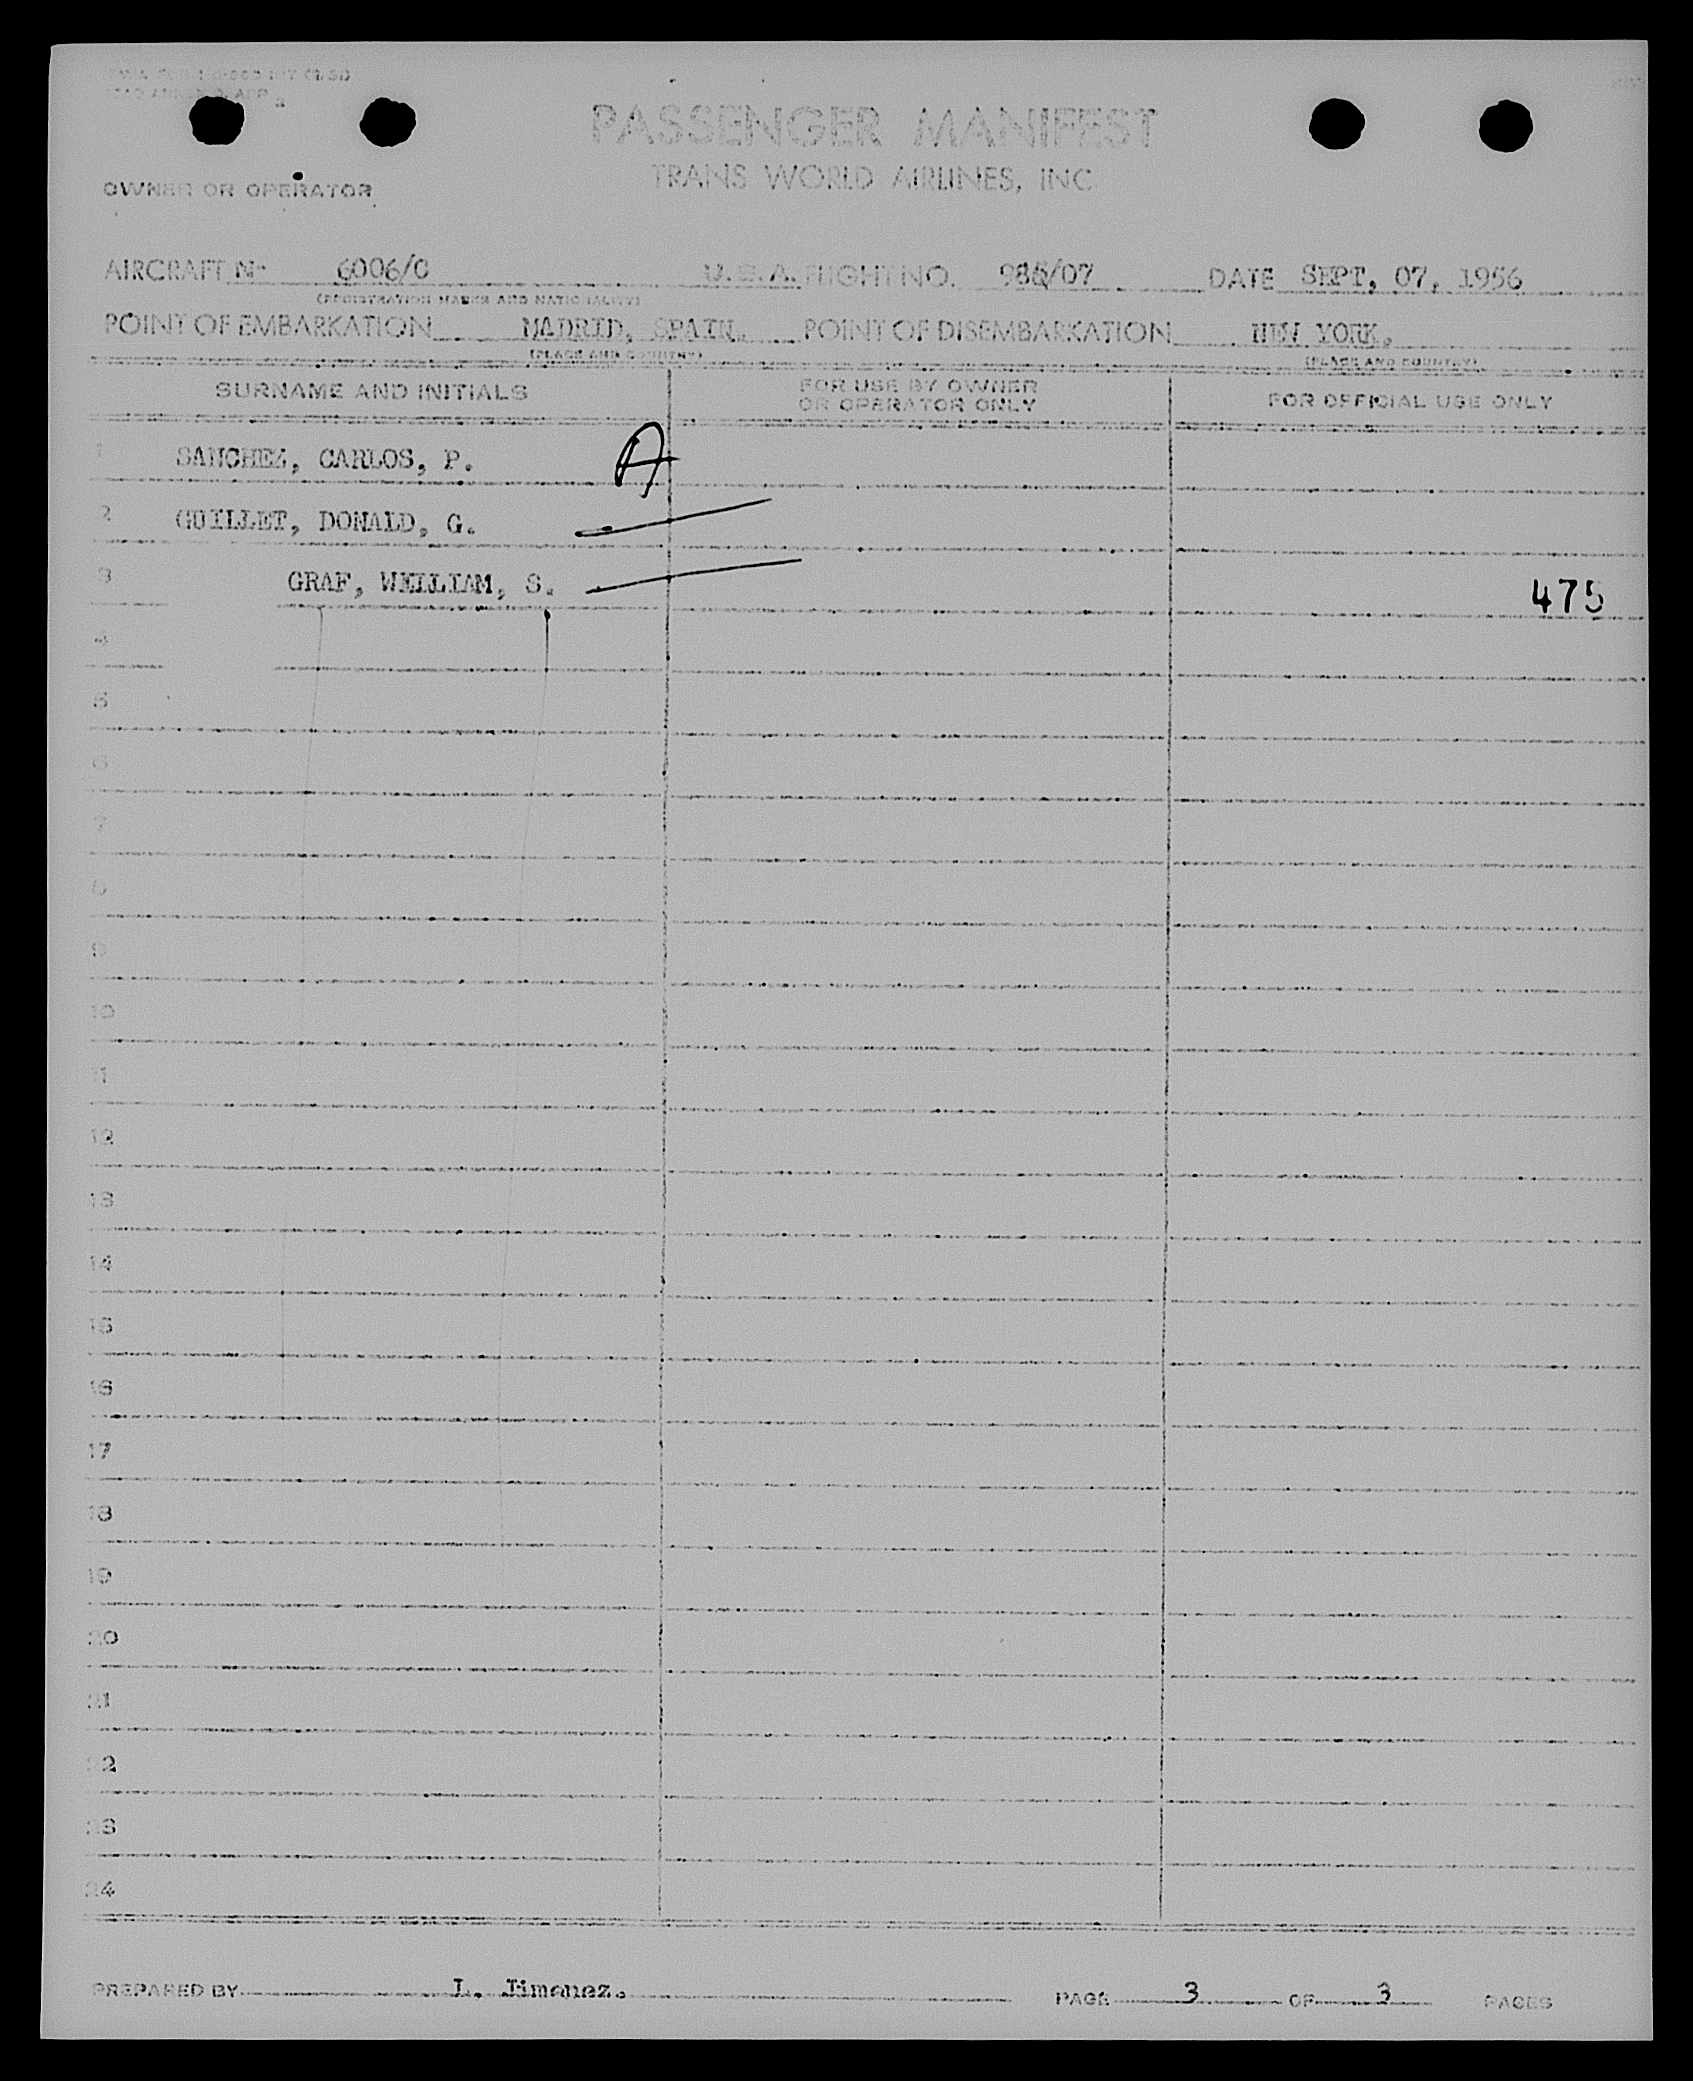 PASSENGER MANIFEST
TRANS WORLD AIRLINES, INC
OWNER OR OPERATOR
AIRCRAFT No 6006/C U.S.A. FLIGHT NO. 985/07 DATE SEPT, 07, 1956
(REGISTRATION MARKS AND NATIONALITY)
POINT OF EMBARKATION MADRID, SPAIN. POINT OF DISEMBARKATION NEW YORK.
(PLACE AND COUNTRY) (PLACE AND COUNTRY)
SURNAME AND INITIALS FOR USE BY OWNER OR OPERATOR ONLY FOR OFFICIAL USE ONLY
1 SANCHEZ, CARLOS, P. A
2 GUILLET, DONALD, G.
3 GRAF, WEILLIAM, S. 475
4
5
6
7
8
9
10
11
12
13
14
15
16
17
18
19
20
21
22
23
24
PREPARED BY L. Jimenez. PAGE 3 OF 3 PAGES